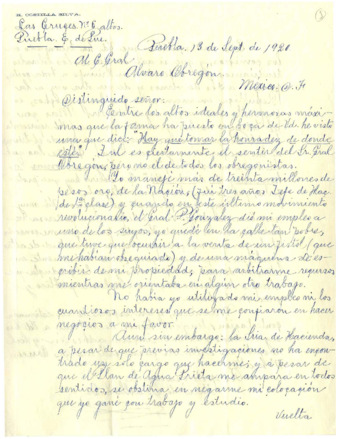 R. COSTILLA SILVA.
Las Cruces Nº 6, altos.
Puebla, E. de Pue.
Puebla, 13 de Sept. de 1920
Al C. Gral
Alvaro Obregón,
México, D. F.
Distinguido señor:
Entre los altos ideales y hermosas máxi-
mas que la fama ha puesto en boca de Ud. he visto
una que dice: "Hay que tomar la honradez de donde
esté". Tal es ciertamente el sentir del Sr. Gral
Obregón, pero no el de todos los obregonistas.
Yo manejé más de treinta millones de
pesos, oro, de la Nación, (fuí tres años Jefe de Hac.
de 1ª clase) y cuando en este último movimiento
revolucionario, el Gral P. González dió mi empleo a
uno de los suyos, yo quedé en la calle tan pobre,
que tuve que ocurrir a la venta de un fistol, (que
me habían obsequiado) y de una máquina de es-
cribir de mi propiedad, para arbitrarme recursos
mientras me orientaba en algun otro trabajo.
No había yo utilizado mi empleo ni los
cuantiosos intereses que se me confiaron en hacer
negocios a mi favor.
Aun, sin embargo: la Sría. de Hacienda,
a pesar de que previas investigaciones no ha encon-
trado un solo cargo que hacerme; y a pesar de
que el Plan de Agua Prieta me ampara en todos
sentidos, se obstina en negarme mi colocación
que yo gané por trabajo y estudio.
Vuelta